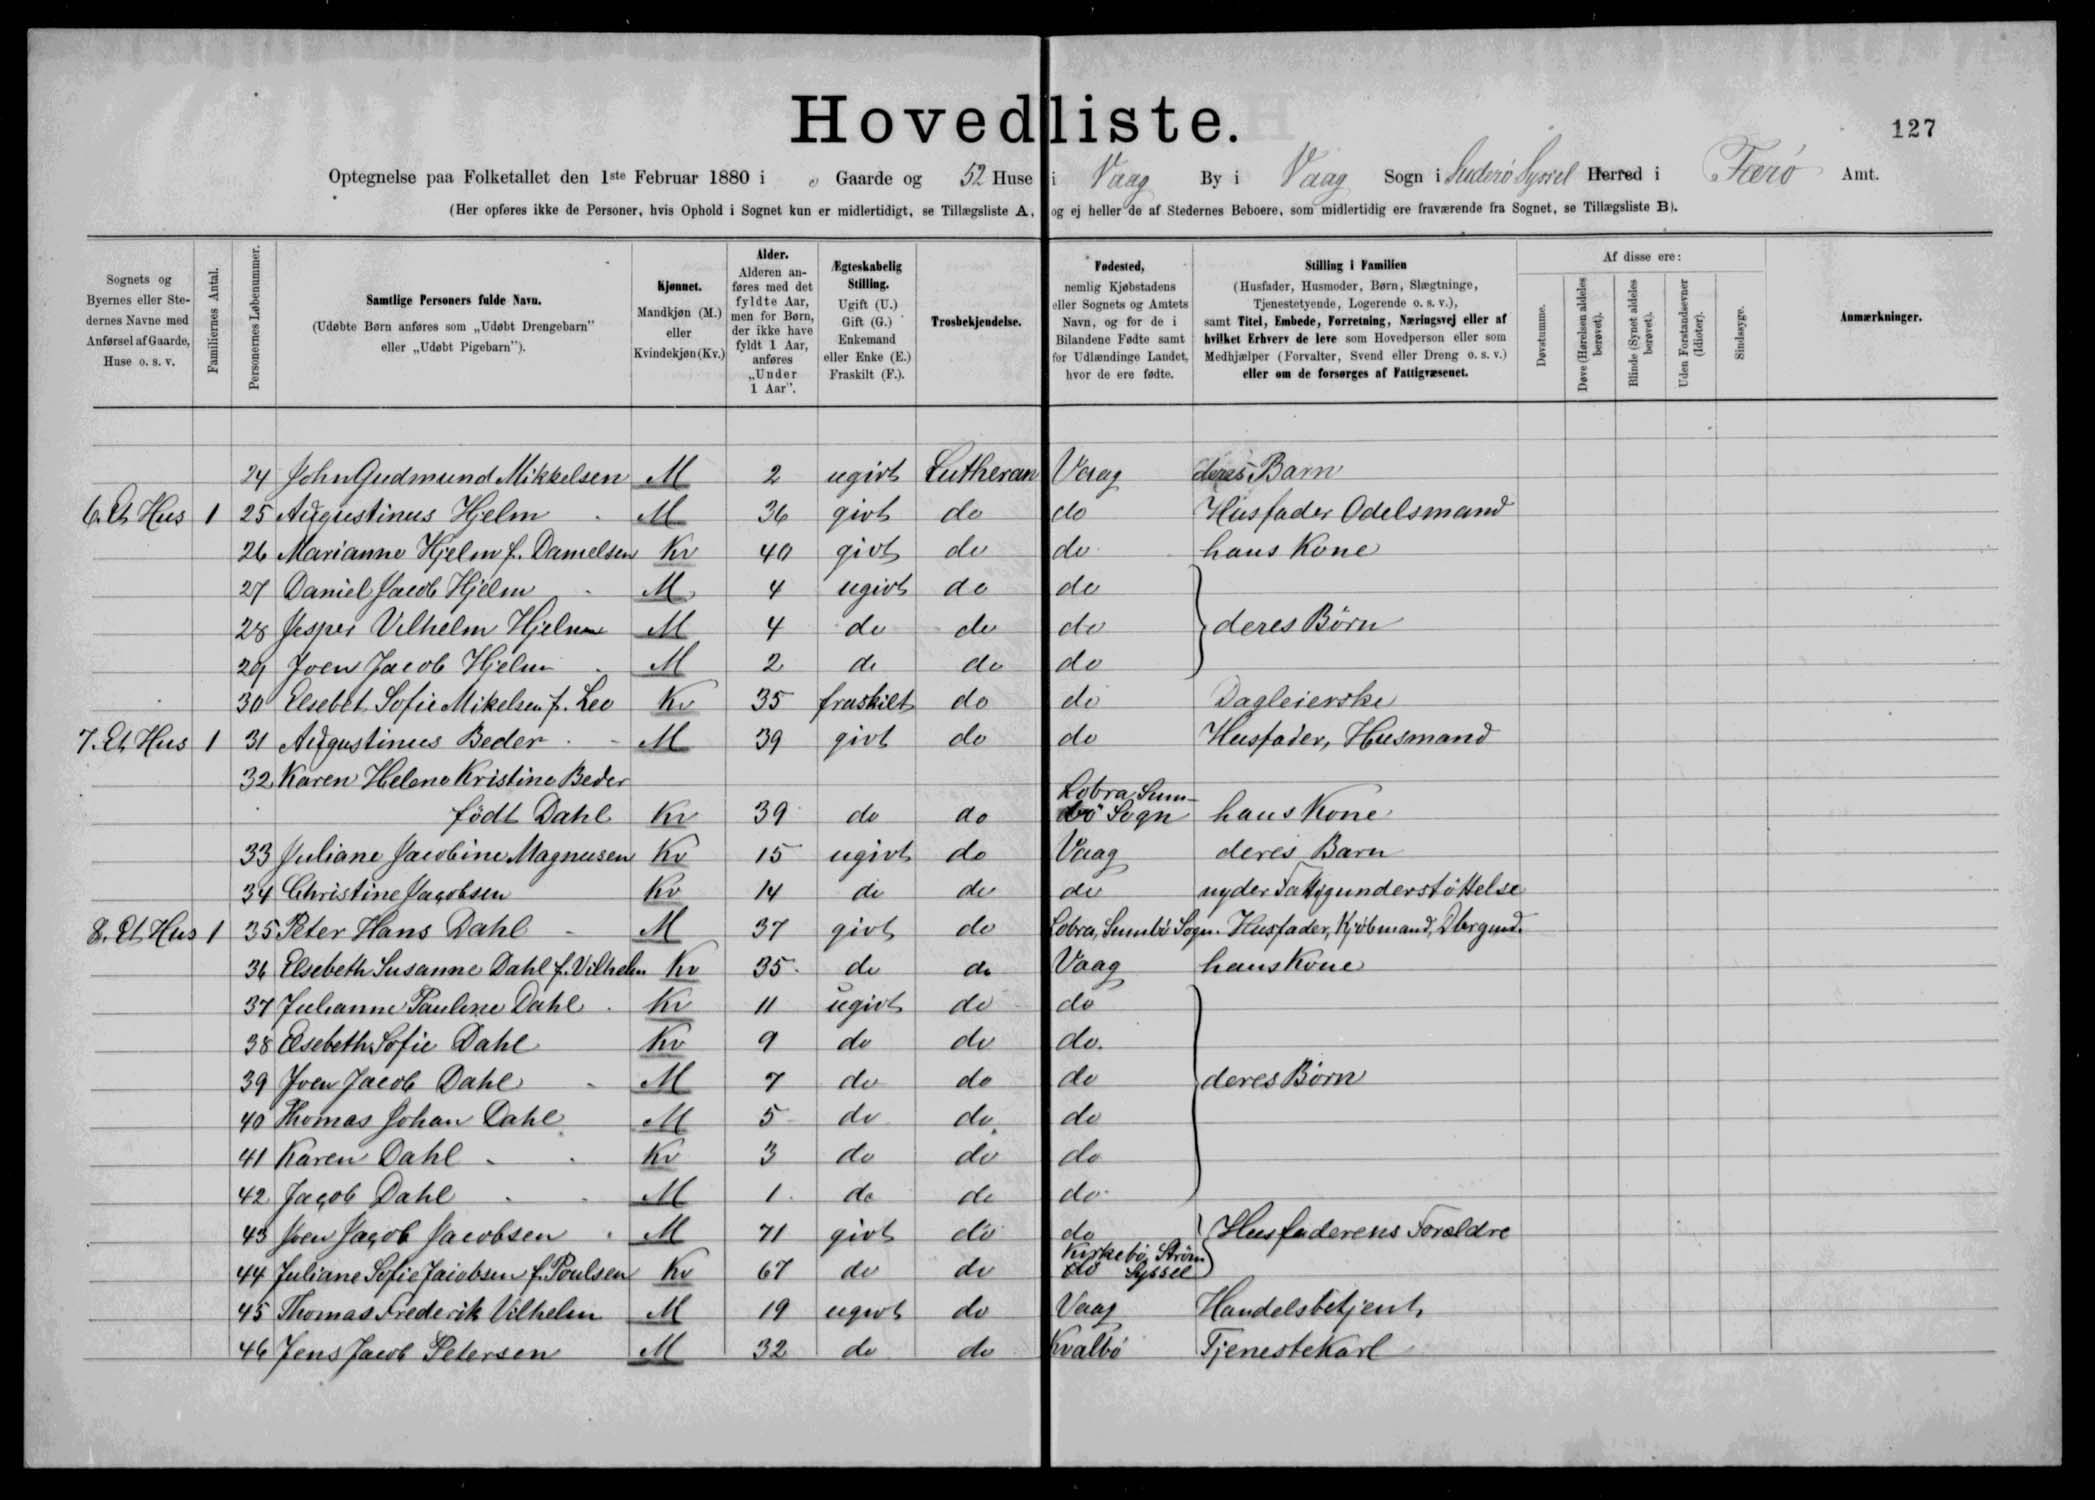 Hovedliste.
127
Optegnelse paa Folketallet den 1ste Februar 1880 i 0 Gaarde og 52 Huse i Vaag By i Vaag Sogn i Suderø Syssel Herred i Færø Amt.
(Her opføres ikke de Personer, hvis Ophold i Sognet kun er midlertidigt, se Tillægsliste A, og ej heller de af Stedernes Beboere, som midlertidig ere fraværende fra Sognet, se Tillægsliste B).
Sognets og Byernes eller Stedernes Navne med Anførsel af Gaarde, Huse o. s. v.
Familiernes Antal.
Personernes Løbenummer.
Samtlige Personers fulde Navn.
(Udøbte Børn anføres som „Udøbt Drengebarn" eller „Udøbt Pigebarn").
Kjønnet.
Mandkjøn (M.) eller Kvindekjøn (Kv.)
Alder.
Alderen anføres med det fyldte Aar, men for Børn, der ikke have fyldt 1 Aar, anføres „Under 1 Aar".
Ægteskabelig Stilling.
Ugift (U.) Gift (G.) Enkemand eller Enke (E.) Fraskilt (F.).
Trosbekjendelse.
Fødested,
nemlig Kjøbstadens eller Sognets og Amtets Navn, og for de i Bilandene Fødte samt for Udlændinge Landet, hvor de ere fødte.
Stilling i Familien
(Husfader, Husmoder, Børn, Slægtninge, Tjenestetyende, Logerende o. s. v.),
samt Titel, Embede, Forretning, Næringsvej eller af hvilket Erhverv de leve som Hovedperson eller som Medhjælper (Forvalter, Svend eller Dreng o. s. v.) eller om de forsørges af Fattigvæsenet.
Af disse ere:
Døvstumme.
Døve (Hørelsen aldeles berøvet).
Blinde (Synet aldeles berøvet).
Uden Forstandsevner (Idioter).
Sindssyge.
Anmærkninger.
24 John Gudmund Mikkelsen M 2 ugivt Lutheran Vaag deres Barn
6. Et Hus 1 25 Augustinus Hjelm M 36 givt do do Husfader Odelsmand
26 Marianne Hjelm f. Danielsen Kv 40 givt do do hans Kone
27 Daniel Jacob Hjelm M 4 ugivt do do
28 Jesper Vilhelm Hjelm M 4 do do do deres Børn
29 Joen Jacob Hjelm M 2 do do do
30 Elsebet Sofie Mikelsen f. Leo Kv 35 fraskilt do do Dagleierske
7. Et Hus 1 31 Augustinus Beder M 39 givt do do Husfader, Husmand
32 Karen Helene Kristine Beder
født Dahl Kv 39 do do Lobra, Sumbö Sogn hans Kone
33 Juliane Jacobine Magnusen Kv 15 ugivt do Vaag deres Barn
34 Christine Jacobsen Kv 14 do do do nyder Fattigunderstøttelse
8. Et Hus 1 35 Peter Hans Dahl M 37 givt do Lobra, Sumbö Sogn Husfader, Kjöbmand,
36 Elsebeth Susanne Dahl f. Vilhelm Kv 35 do do Vaag hans Kone
37 Julianne Pauline Dahl Kv 11 ugivt do do
38 Elsebeth Sofie Dahl Kv 9 do do do.
39 Joen Jacob Dahl M 7 do do do deres Børn
40 Thomas Johan Dahl M 5 do do do
41 Karen Dahl Kv 3 do do do
42 Jacob Dahl M 1 do do do
43 Joen Jacob Jacobsen M 71 givt do do Husfaderens Forældre
44 Juliane Sofie Jacobsen f. Poulsen Kv 67 do do Kirkebö, Ström do Syssel
45 Thomas Frederik Vilhelm M 19 ugivt do Vaag Handelsbetjent
46 Jens Jacob Petersen M 32 do do Kvalbö Tjenestekarl